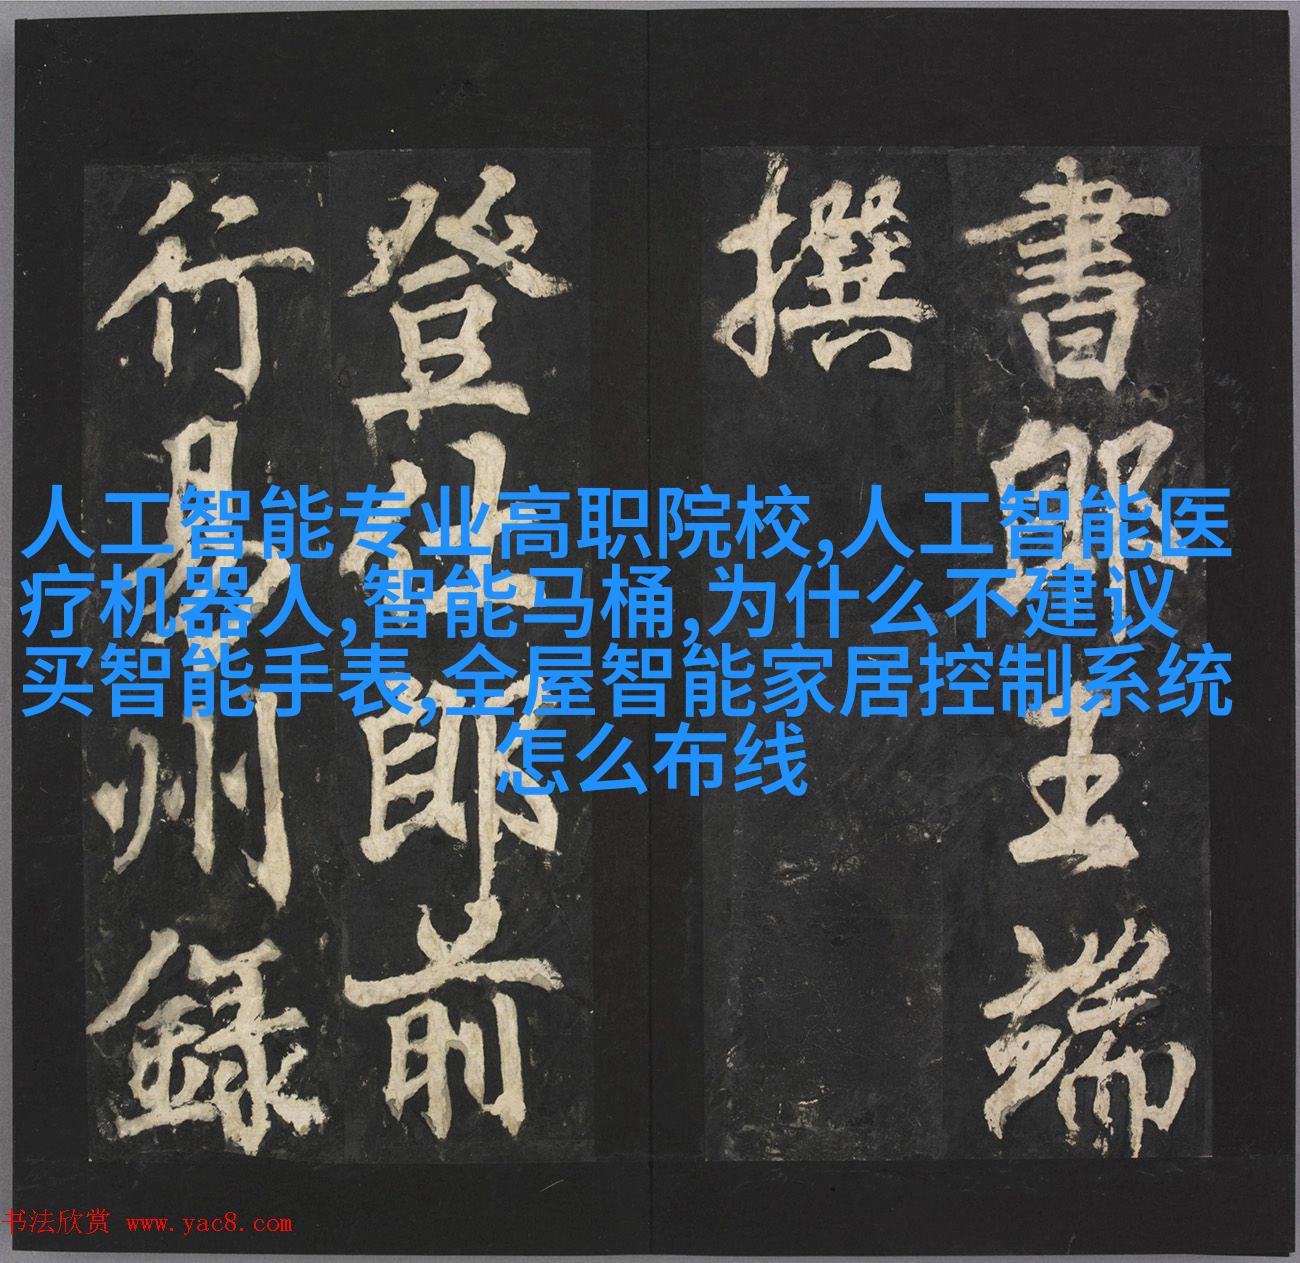 書郎王端
撰
登仕郎前
行易州錄
人工智能专业高职院校,人工智能医
疗机器人,智能马桶,为什么不建议
买智能手表,全屋智能家居控制系统
怎么布线
书法欣赏 www.yac8.com